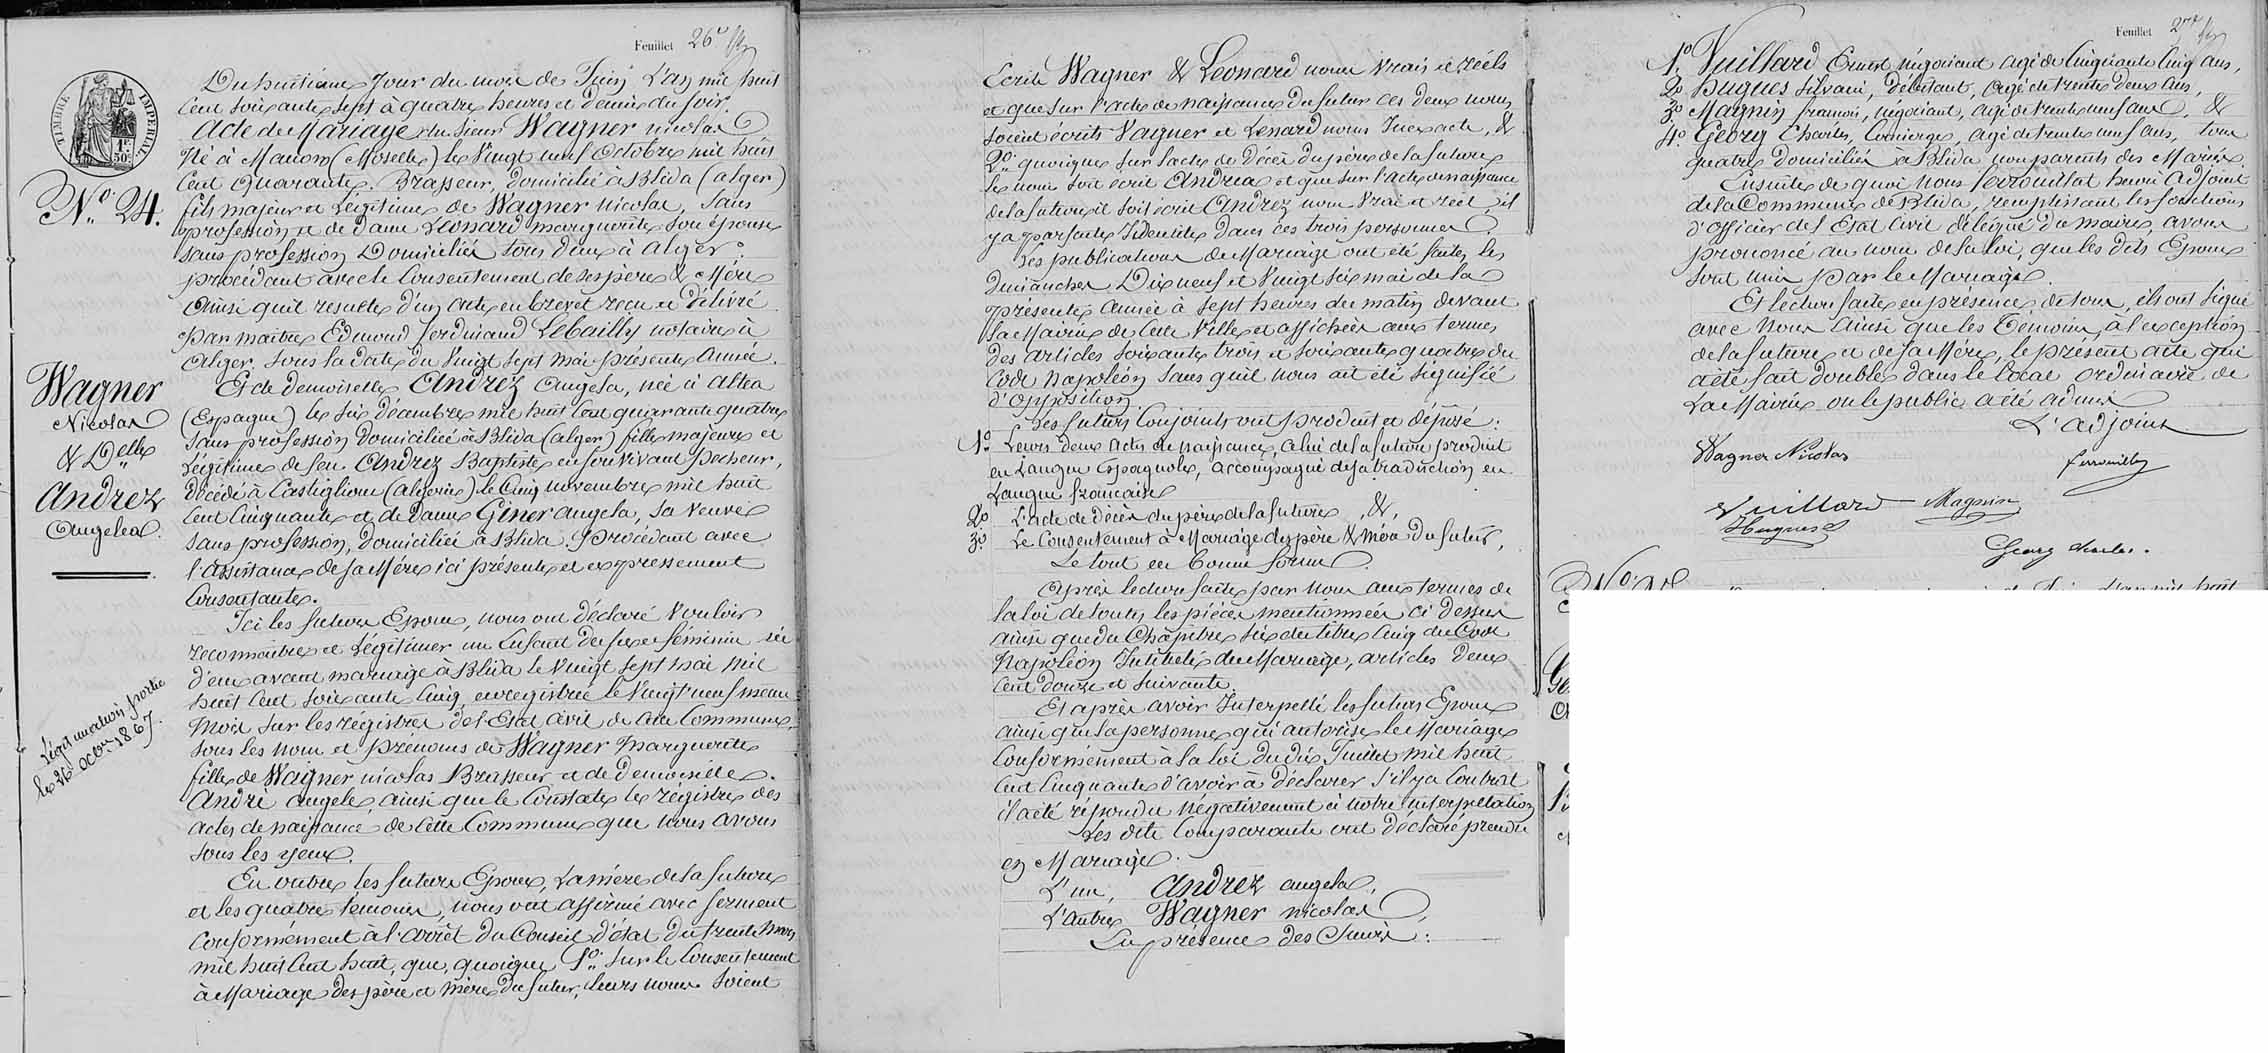 Feuillet 26e
TIMBRE IMPERIAL
1F.
50c
N° 24.
Wagner
Nicolas
& Delle
Andrez
Angela.
Légitimation portée
le 26 octbre 1867.
Du huitième Jour du mois de Juin L'an mil huit
Cent soixante sept à quatre heures et demie du soir.
Acte de Mariage du Sieur Wagner nicolas
Né à Manom (Moselle) le Vingt neuf Octobre mil huit
Cent Quarante. Brasseur, domicilié à Blida (alger)
fils majeur et Légitime de Wagner nicolas, Sans
profession et de Dame Léonard marguerite son épouse
sans profession Domiciliés tous deux à Alger.
procédant avec le Consentement de ses père & Mère
Ainsi qu'il resulte d'un acte en brevet reçu et délivré
par maître Edmond ferdinand Lebailly notaire à
Alger. sous la date du Vingt sept mai présente Année.
Et de Demoiselle Andrez Angela, née à Altea
(Espagne) le six décembre mil huit Cent quarante quatre
Sans profession domiciliée à Blida (alger) fille majeure et
Légitime de feu Andrez Baptiste en son vivant pecheur,
décédé à Castiglione (algerie) le Cinq novembre mil huit
Cent Cinquante et de Dame Giner angela, sa veuve
sans profession, domiciliée à Blida. Procédant avec
l'assistance de sa Mère ici présente et expressement
Consentante.
Ici les futurs Epoux, nous ont déclaré Vouloir
reconnaître et Légitimer un Enfant du sexe féminin né
d'eux avant mariage à Blida le Vingt sept mai mil
huit Cent soixante Cinq, enregistrée le Vingt neuf même
Mois sur les régistres de l'Etat civil de cette Commune
sous les nom et prénoms de Wagner Marguerite
fille de Wagner nicolas Brasseur et de Demoiselle
André angele ainsi que le Constate le régistre des
actes de naissance de cette Commune que nous avons
sous les yeux.
En outre, les futurs Epoux, La mère de la future
et les quatre témoins, nous ont affirmé avec serment
Conformément à l'arrêt du Conseil d'état du trente Mars
mil huit Cent huit, que, quoique 1° sur le Consentement
à Mariage des père et mère du futur, leurs noms soient
Ecrits Wagner & Léonard noms vrais et réels
et que sur l'acte de naissance du futur ces deux noms
soient écrits Vagner et Lenard noms Inexacts, &
2° quoique sur l'acte de Décès du père de la future
le nom soit écrit Andrea et que sur l'acte de naissance
de la future il soit écrit Andrez nom Vrai et réel, il
y a parfaite Identité dans ces trois personnes.
Les publications de Mariage ont été faites les
dimanches Dix neuf et Vingt six mai de la
présente année à sept heures du matin devant
La Mairie de Cette Ville et affichées aux termes
des Articles soixante trois et soixante quatre du
Code Napoléon sans qu'il nous ait été signifié
d'opposition.
Les futurs Conjoints ont produit et déposé:
1° Leurs deux Actes de naissance, Celui de la future produit
en Langue Espagnole, accompagné de sa traduction en
Langue française
2° L'acte de Décès du père de la future, &,
3° Le Consentement à Mariage des père & Mère du futur,
Le tout en bonne forme.
Après lecture faite par nous aux termes de
la loi de toutes les pièces mentionnées ci Dessus
ainsi que du Chapitre Six du titre Cinq du Code
Napoléon Intitulé du Mariage, articles deux
cent douze et suivants.
Et après avoir Interpellé les futurs Epoux
ainsi que la personne qui autorise le Mariage
Conformément à la loi du dix Juillet mil huit
Cent Cinquante d'avoir à déclarer s'il y a Contrat
il a été répondu Négativement à notre interpellation
Les dits Comparants ont Déclaré prendre
en Mariage.
L'un, Andrez angela,
L'Autre Wagner nicolas,
En présence des Sieurs:
Feuillet 27e
1° Vuillard Ernest négociant agé de Cinquante Cinq ans,
2° Hugues Silvain, débitant, agé de trente deux ans,
3° Magnin francois, négociant, agé de trente neuf ans, &
4° Georg Charles, Concierge, agé de trente neuf ans, tous
quatre domiciliés à Blida non parents des Mariés.
Ensuite de quoi Nous ferrouillat henri Adjoint
de la Commune de Blida, remplissant les fonctions
d'officier de l'Etat Civil délégué du maire, avons
prononcé au nom de la loi, que les dits Epoux
sont unis par le Mariage.
Et lecture faite en présence de tous, ils ont signé
avec Nous ainsi que les Témoins, à l'exception
de la future et de sa Mère, le présent acte qui
a été fait double dans le local ordinaire de
La Mairie ou le public a été admis
L'adjoint
Wagner Nicolas
ferrouillat
Vuillard
Magnin
Hugues S
Georg charles.